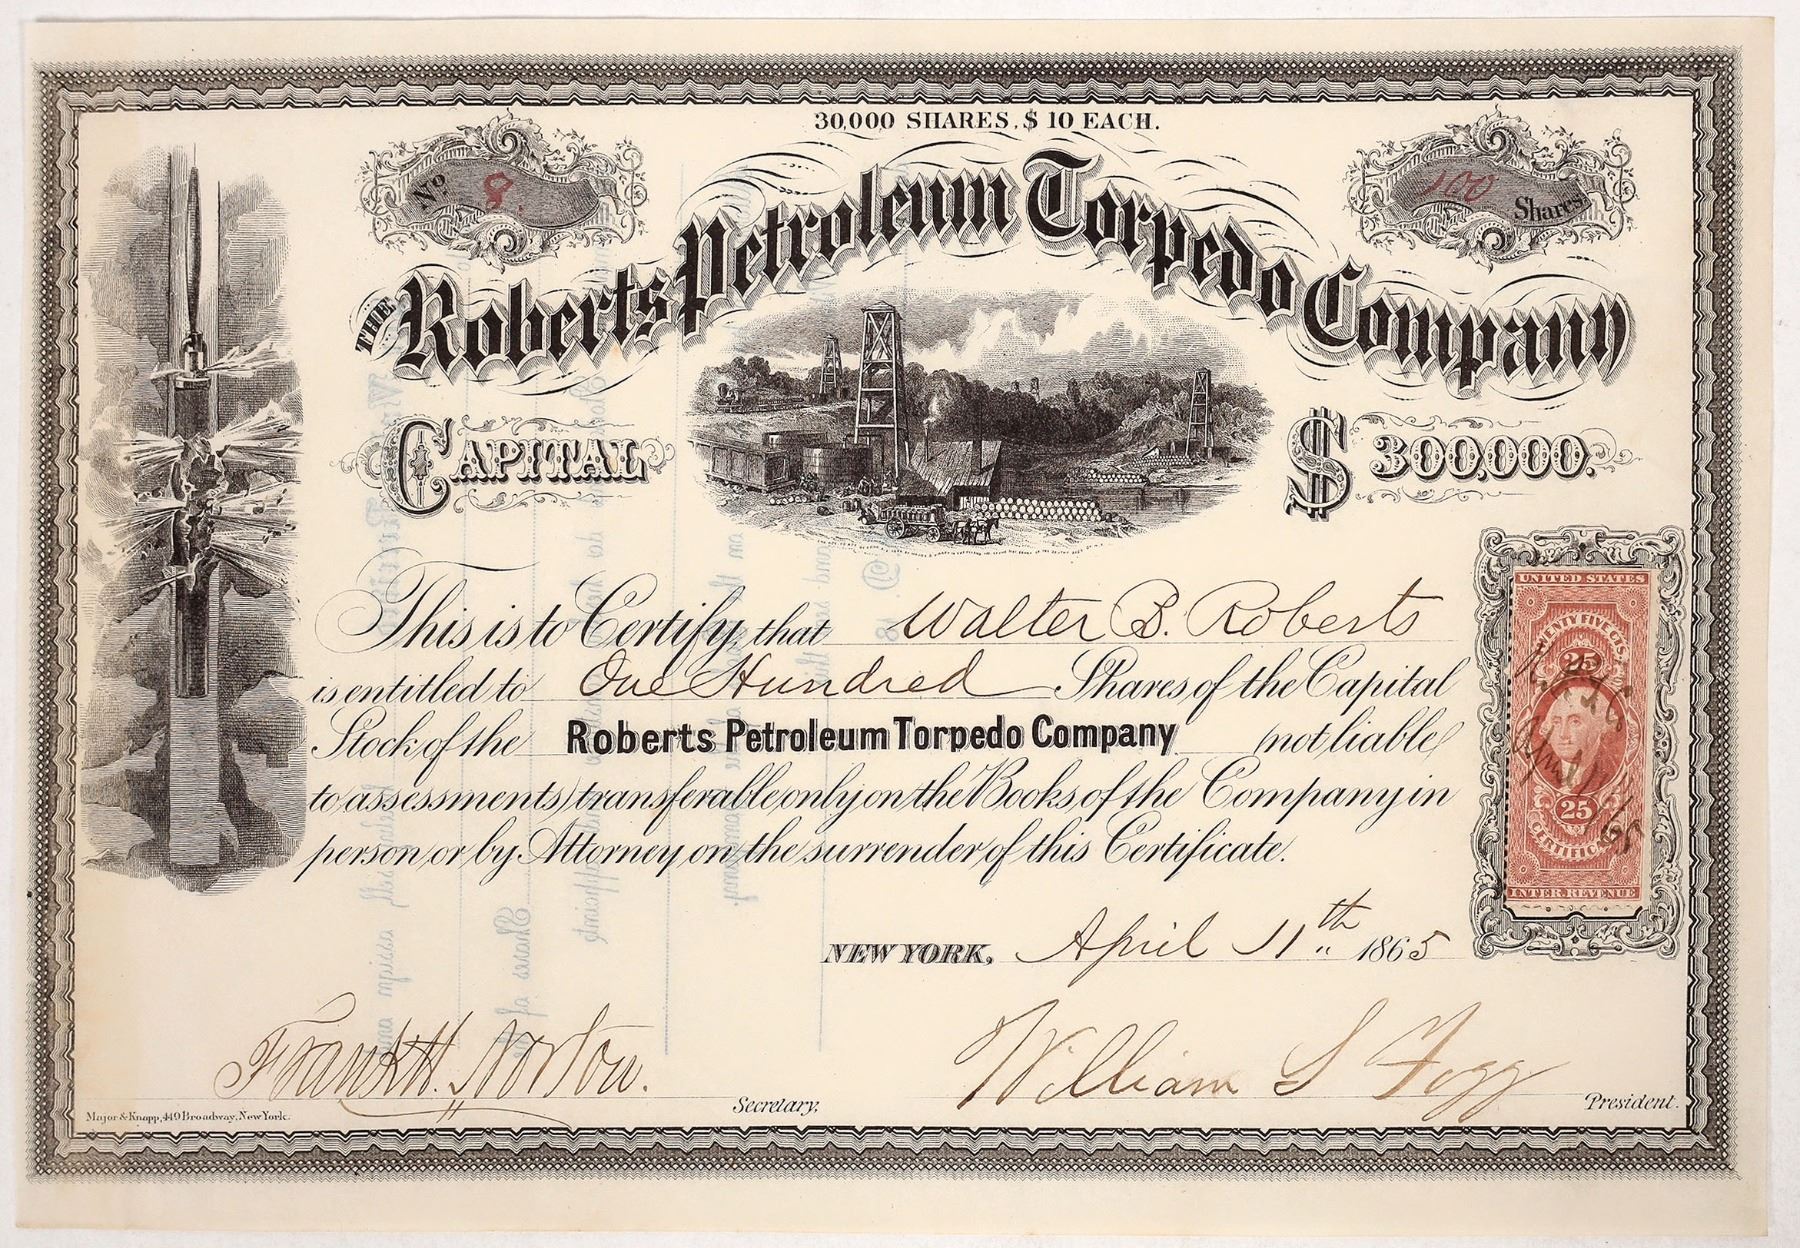 30,000 SHARES, $ 10 EACH.
No 8.
100 Shares
THE Roberts Petroleum Torpedo Company
CAPITAL $300,000.
This is to Certify that Walter B. Roberts
is entitled to One Hundred Shares of the Capital
Stock of the Roberts Petroleum Torpedo Company (not liable
to assessments) transferable only on the Books of the Company in
person or by Attorney on the surrender of this Certificate.
UNITED STATES
TWENTY FIVE CTS.
25
25
CERTIFICATE
INTER. REVENUE
NEW YORK, April 11th 1865
Frank H. Norton. Secretary.
William S Fogg President.
Major & Knapp, 449 Broadway, New York.